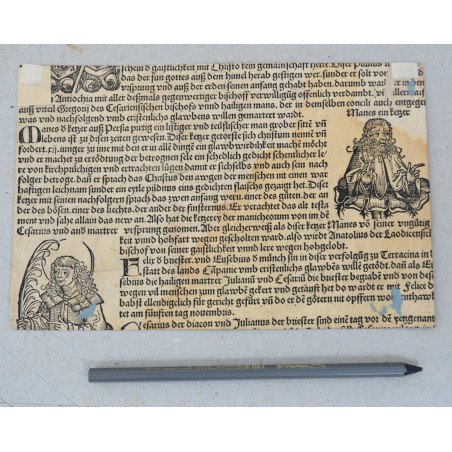 schein d gaistlichkeit mit Christo kein gemainschaft hette. Diser Paulus
das der sun gottes auß dem himel herab gestigen wer. sunder er solt von
vrsprung vnd auß der erden seinen anfang gehabt haben. darumb
Antiochia mit aller deßmals gegenwertiger bischoff verwilligūg offenlich verdambt.
auß vrteil Gregorij des Cesariensischen bischofs vnnd hailigen mans. der in demselben concili auch entgegen
was vnd nachfolgend vmb cristenlichs glawbens willen gemartert wardt.
Manes ein ketzer
Manes d ketzer auß Persia pürtig ein listiger vnd
lebens ist zu disen zeiten gewesen. Diser getorste sich christum nennē vñ
fordert. xij. iunger zu ime mit den er in all dingē ein glawbwirdikeit machē möcht
vnd er machet zu ertödtung der betrognen sele ein schedlich gedicht
von kirchpüchern vnd ertrachten lügen damit er sichselbs vnd auch sein nach
folger betroge. dañ er sprach das Christus den awgen der menschen nit einen war
hafftigen leichnam sunder ein eytle pildung eins gedichten flaischs gezaigt het. Diser
ketzer mit seinen nachfolgern sprach das zwen anfang wern. einer des güten. der an
der des bösen. einer des liechts. der ander der finsternus. Er verachtet das alt testa
ment vnd sahe allain das new an. Also hat die ketzerey der manicheorum von im dē
vrsprung genomen. Aber gleicherweiß als diser ketzer Manes vō seiner
Cesarius vnd
keit vnnd hohfart wegen gescholten ward. also wirdt Anatolius der
bischof von seiner gaistlichkeit vnnd lere wegen hohgelobt.
Felix d briester. vnd Eusebius d münch sin in diser verfolgūg zu Terracina in d
stat des lands Cāpanie vmb cristenlichs glawbēs willē getödt. dañ als
sebius die hailigen martrer Julianū vnd Cesariū die briester begraben
wegen vil menschen zum glawbē gekert vnd getauft het do ward er mit Felice d
babst ellendigklich für gericht gefürt vñ do er dē göttern nit opffern
tet am fünften tag nouembris.
Cesarius der diacon vnd Julianus der briester sind einē tag vor dē